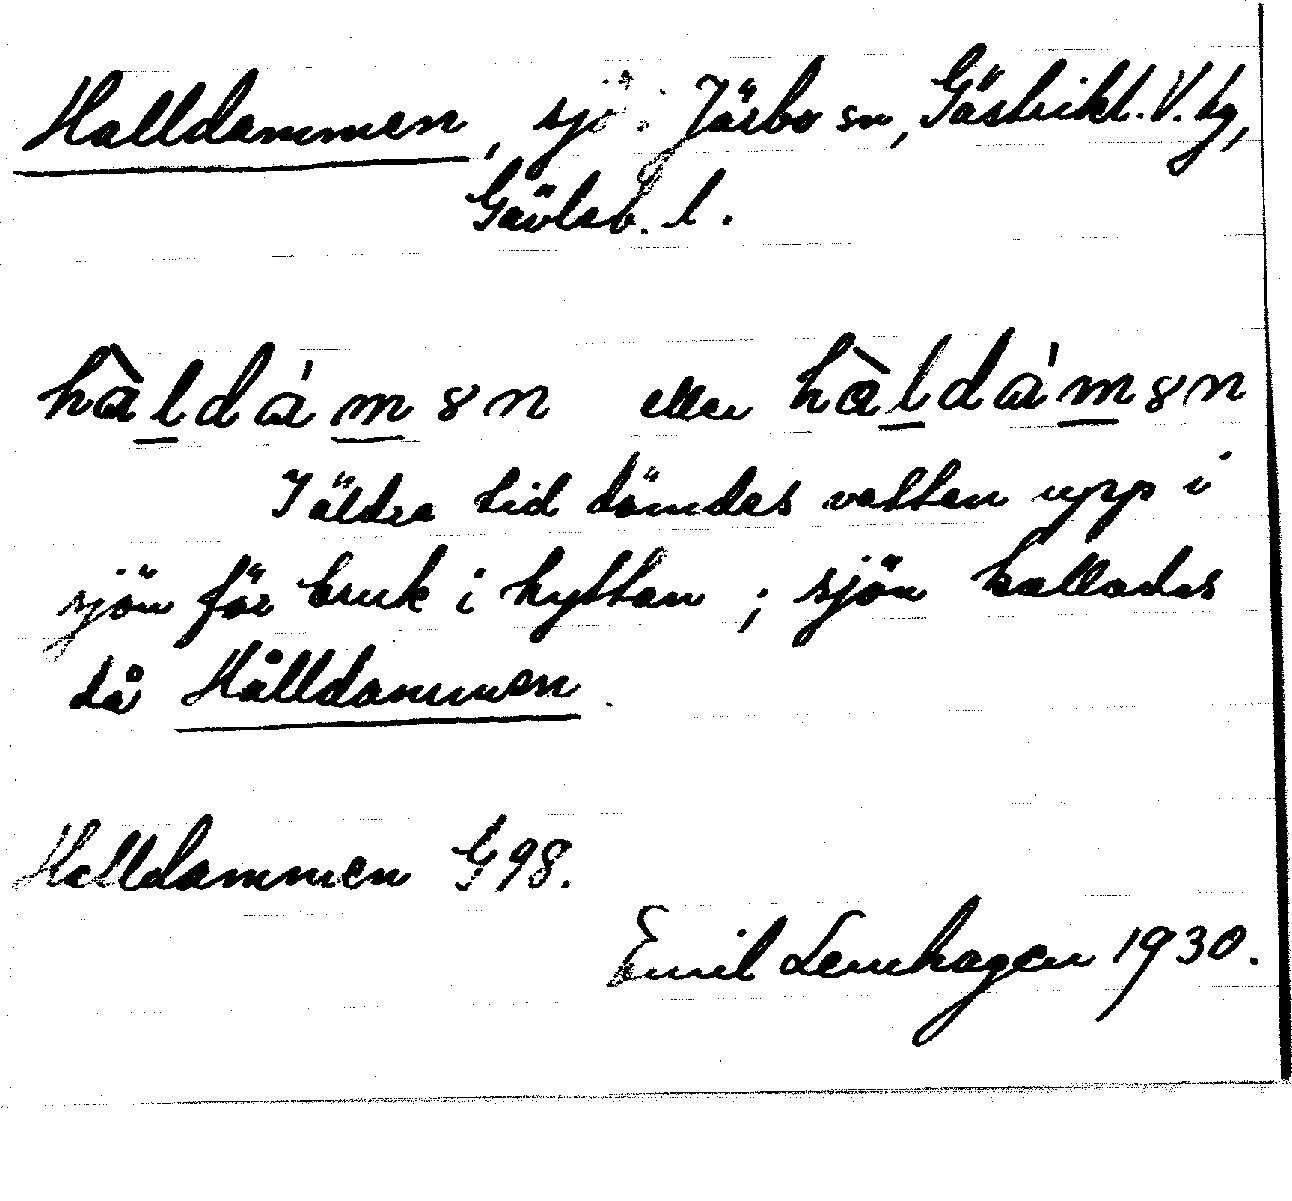 Halldammen, sjö. Järbo sn, Gästrikl. V. tg,
Gävleb. l.
hàldámən eller hàldámən
I äldre tid dämdes vatten upp i
sjön för bruk i hyttan; sjön kallades
då Hålldammen.
Halldammen G98.
Emil Lenhagen 1930.